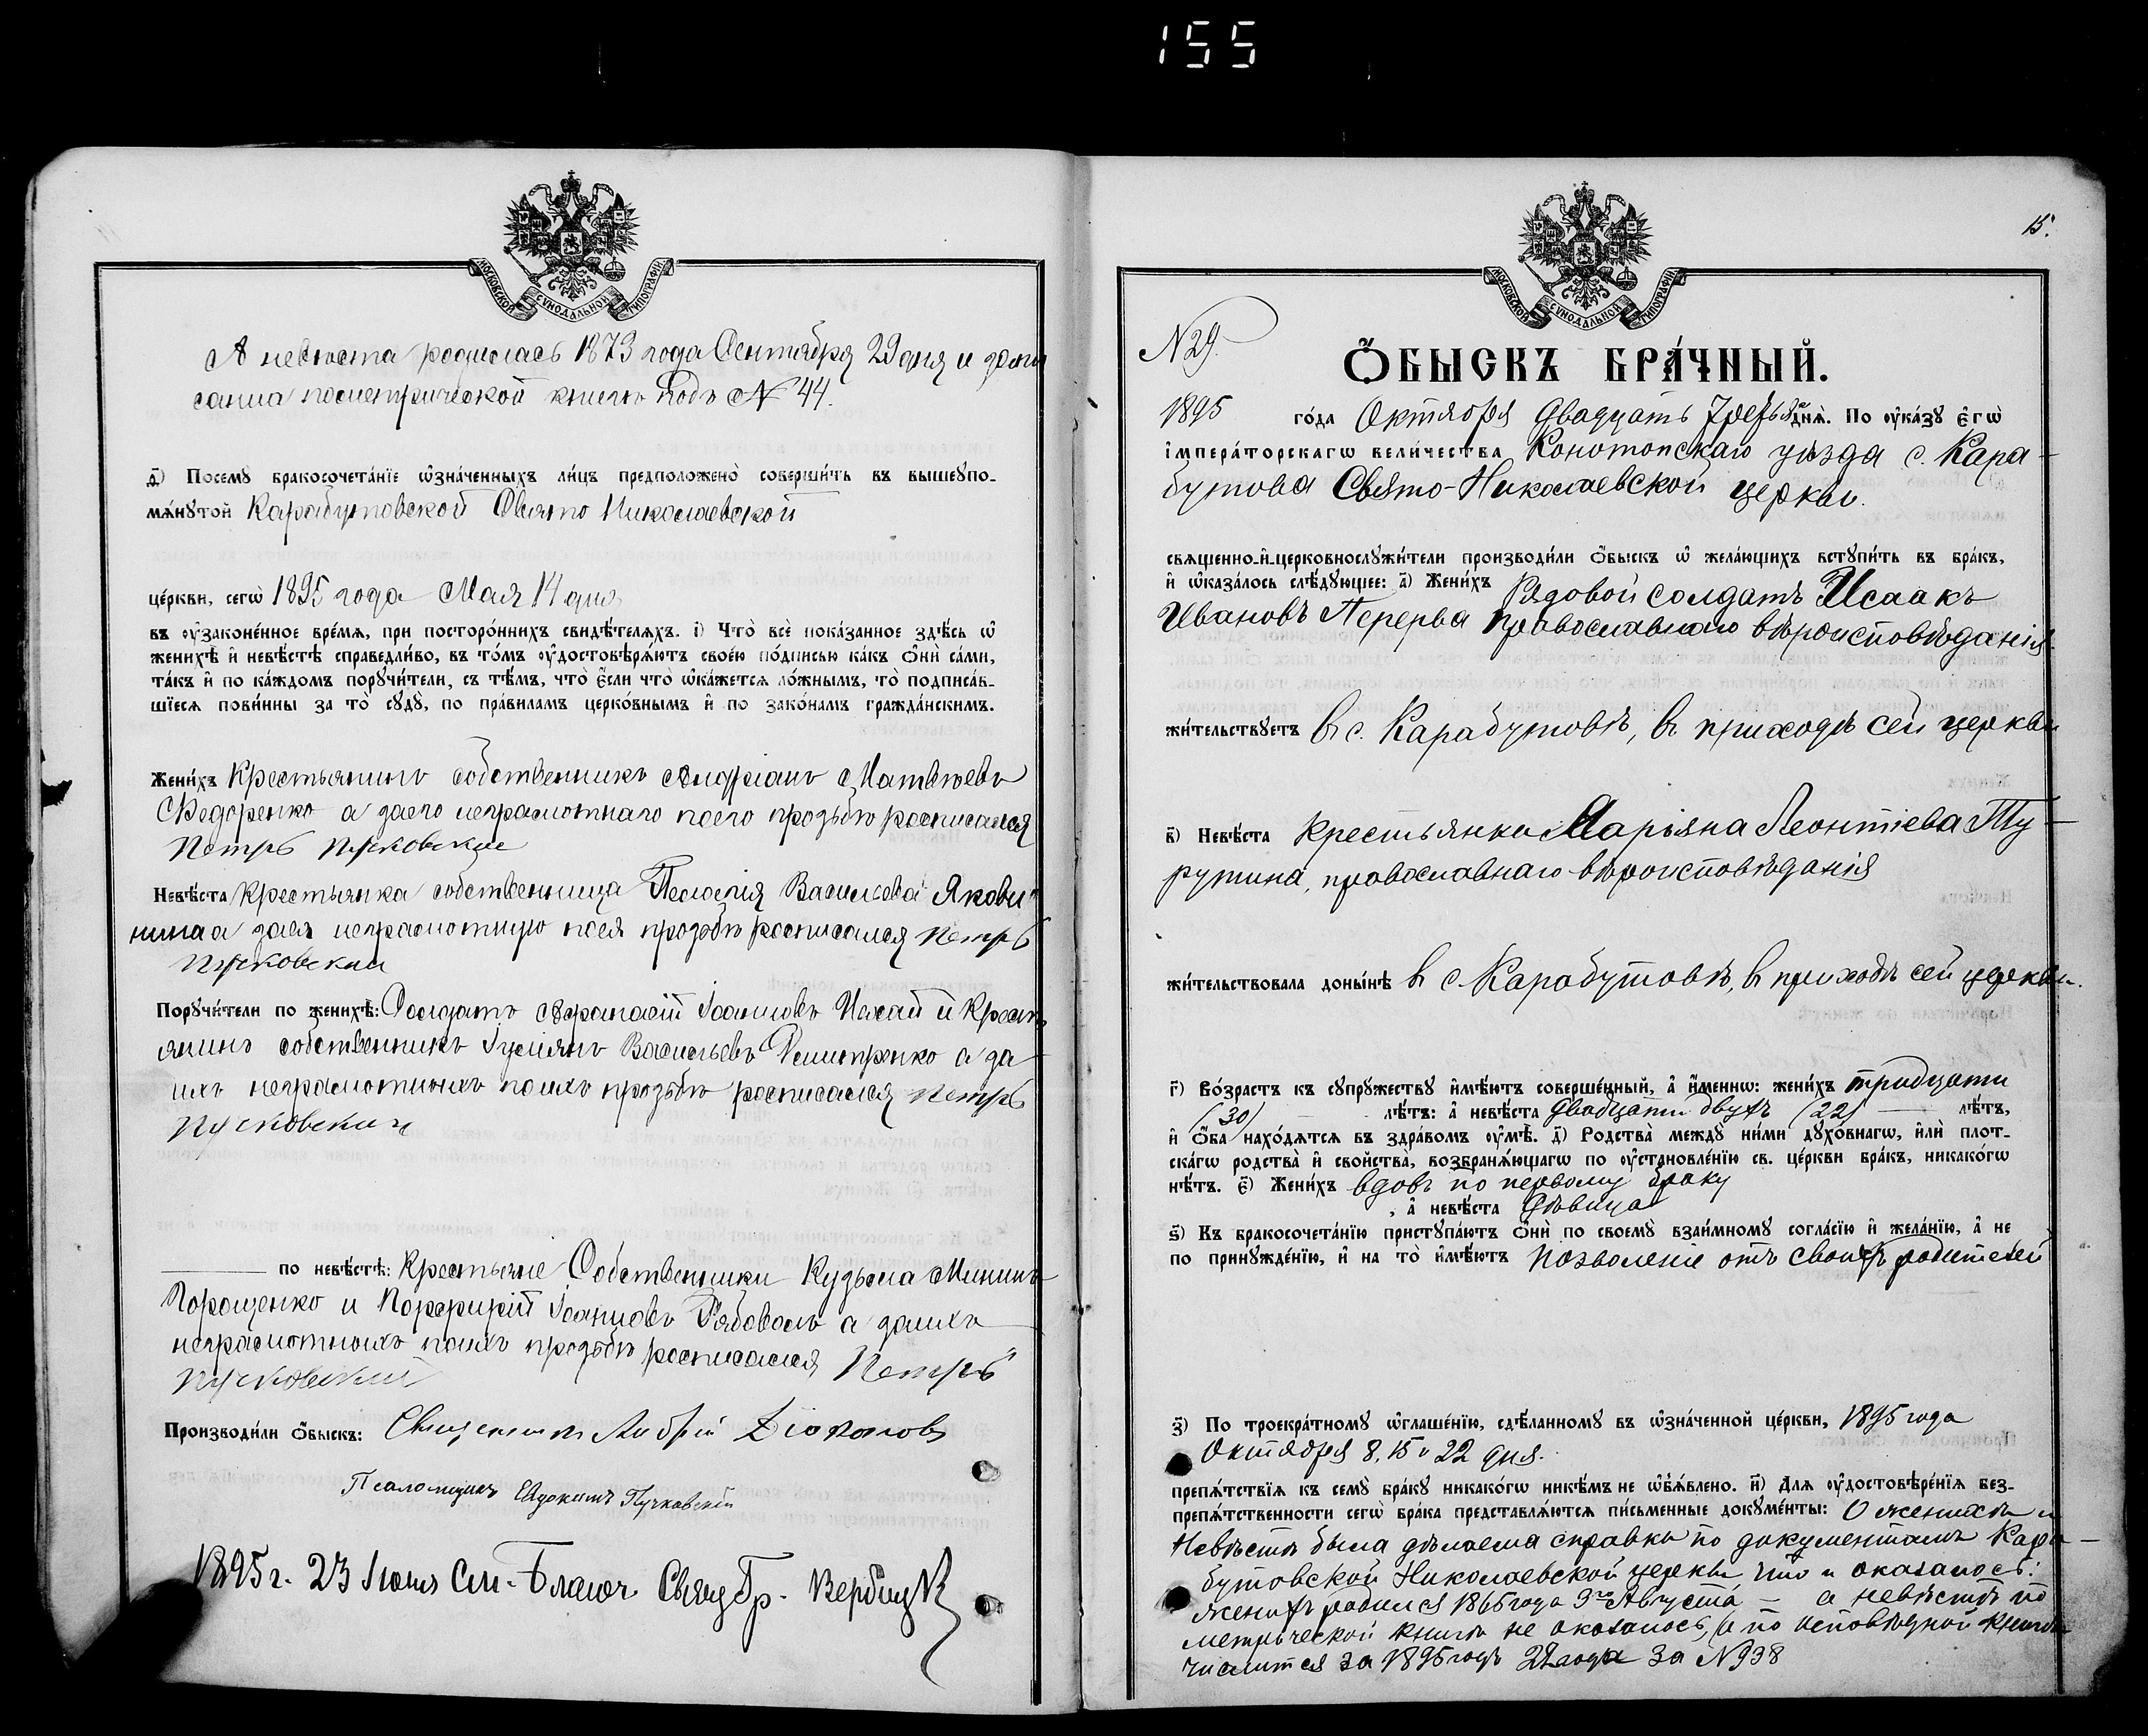 155
МОСКОВСКОЙ СѴНОДАЛЬНОЙ ТИПОГРАФІИ
А невѣста родилась 1873 года Сентября 29 дня и запи
санна пометрической книгѣ подъ № 44.
д҃) Посемꙋ бракосочета́нїе ѡ҆зна́ченныхъ ли́цъ предположено̀ соверши́ть въ вышеꙋпо-
мѧ́нꙋтой Карабутовской Свято Николаевской
це́ркви, сегѡ̀ 1895 года Мая 14 дня
въ ᲂу҆законе́нное вре́мѧ, при посторо́ннихъ свидѣ́телѧхъ. і҃) Что̀ всѐ пока́занное здѣ́сь ѡ҆
женихѣ̀ и҆ невѣ́стѣ справедли́во, въ то́мъ ᲂу҆достовѣрѧ́ютъ свое́ю по́дписью ка́къ ѻ҆нѝ са́ми,
та́къ и҆ по ка́ждомъ порꙋчи́тели, съ тѣ́мъ, что̀ є҆́сли что̀ ѡ҆ка́жетсѧ ло́жнымъ, то̀ подписа́в-
шїесѧ пови́нны за то̀ сꙋдꙋ̀, по пра́виламъ церко́внымъ и҆ по зако́намъ гражда́нскимъ.
Жени́хъ Крестьянинъ собственникъ Андріанъ Матвѣевъ
Федоренко а заего неграмотнаго поего прозьбѣ росписался
Петръ Пучковскій
Невѣ́ста Крестьянка собственница Пелагія Васильева Якови
нина а заея неграмотную поея прозьбѣ росписался Петръ
Пучковский
Порꙋчи́тели по женихѣ̀: Солдатъ Афанасій Іоанновъ и Крест
янинъ собственникъ Васильевъ Дмитренко а за
ихъ неграмотныхъ поихъ прозьбѣ росписался Петръ
Пучковский
по невѣ́стѣ: Крестьяне Собственники Кузьма Мининъ
Порощенко и Порфирій Іоанновъ Рябоволъ а заихъ
неграмотныхъ поихъ прозьбѣ росписался Петръ
Пучковский
Производи́ли ѻ҆́быскъ: Священникъ Андрій Діоконовъ
Псаломщикъ Евдокимъ Пучковскій
1895 г. 23 Іюня Св.
МОСКОВСКОЙ СѴНОДАЛЬНОЙ ТИПОГРАФІИ
15.
N 29.
Ѻ҆́БЫСКЪ БРА́ЧНЫЙ.
1895 го́да Октября двадцать третья днѧ̀. По ᲂу҆ка́зꙋ є҆гѡ̀
і҆мпера́торскагѡ вели́чества Конотопскаго уѣзда с. Кара-
бутова Свято-Николаевской церкви.
свѧщенно-и҆-церковнослꙋжи́тели производи́ли ѻ҆́быскъ ѡ҆ жела́ющихъ встꙋпи́ть въ бра́къ,
и҆ ѡ҆каза́лось слѣ́дꙋющее: а҃) Жени́хъ Рядовой солдатъ Исаакъ
Ивановъ Перерва православнаго вѣроисповѣданія.
жи́тельствꙋетъ въ с. Карабутовѣ, въ приходѣ сей церкви
в҃) Невѣ́ста крестьянка Маріяна Леонтіева Ту-
рутина, православнаго вѣроисповѣданія
жи́тельствовала доны́нѣ въ с. Карабутовѣ, въ приходѣ сей церкви.
г҃) Во́зрастъ къ сꙋпрꙋ́жествꙋ и҆мѣ́ютъ соверше́нный, а҆ и҆́меннѡ: жени́хъ тридцати
(30) лѣ́тъ: а҆ невѣ́ста двадцати двухъ (22) лѣ́тъ,
и҆ ѻ҆́ба нахо́дѧтсѧ въ здра́вомъ ᲂу҆мѣ̀. д҃) Родства̀ междꙋ̀ ни́ми дꙋхо́внагѡ, и҆лѝ плот-
ска́гѡ родства̀ и҆ свойства̀, возбранѧ́ющагѡ по ᲂу҆становле́нїю св. це́ркви бра́къ, никако́гѡ
нѣ́тъ. є҃) Жени́хъ вдовъ по первому браку
, а҆ невѣ́ста Дѣвица
ѕ҃) Къ бракосочета́нїю пристꙋпа́ютъ ѻ҆нѝ по своемꙋ̀ взаи́мномꙋ согла́сїю и҆ жела́нїю, а҆ не
по принꙋжде́нїю, и҆ на то̀ и҆мѣ́ютъ позволеніе отъ своихъ родителей
з҃) По троекра́тномꙋ ѡ҆глаше́нїю, сдѣ́ланномꙋ въ ѡ҆зна́ченной це́ркви, 1895 года
Октября 8, 15 и 22 дня.
препѧ́тствїѧ къ семꙋ̀ бра́кꙋ никако́гѡ никѣ́мъ не ѡ҆б̾ѧ́влено. и҃) Длѧ ᲂу҆достовѣре́нїѧ без-
препѧ́тственности сегѡ̀ бра́ка представлѧ́ютсѧ пи́сьменные докꙋме́нты: О женихѣ и
Невѣстѣ была дѣлаема справка по документамъ Кара-
бутовской Николаевской церкви что и оказалось:
женихъ родился 1865 года 3го Августа — а невѣстѣ по
метрической книгѣ не оказалось, а по исповѣдной книгѣ
числится за 1895 годъ 22 года за N 938